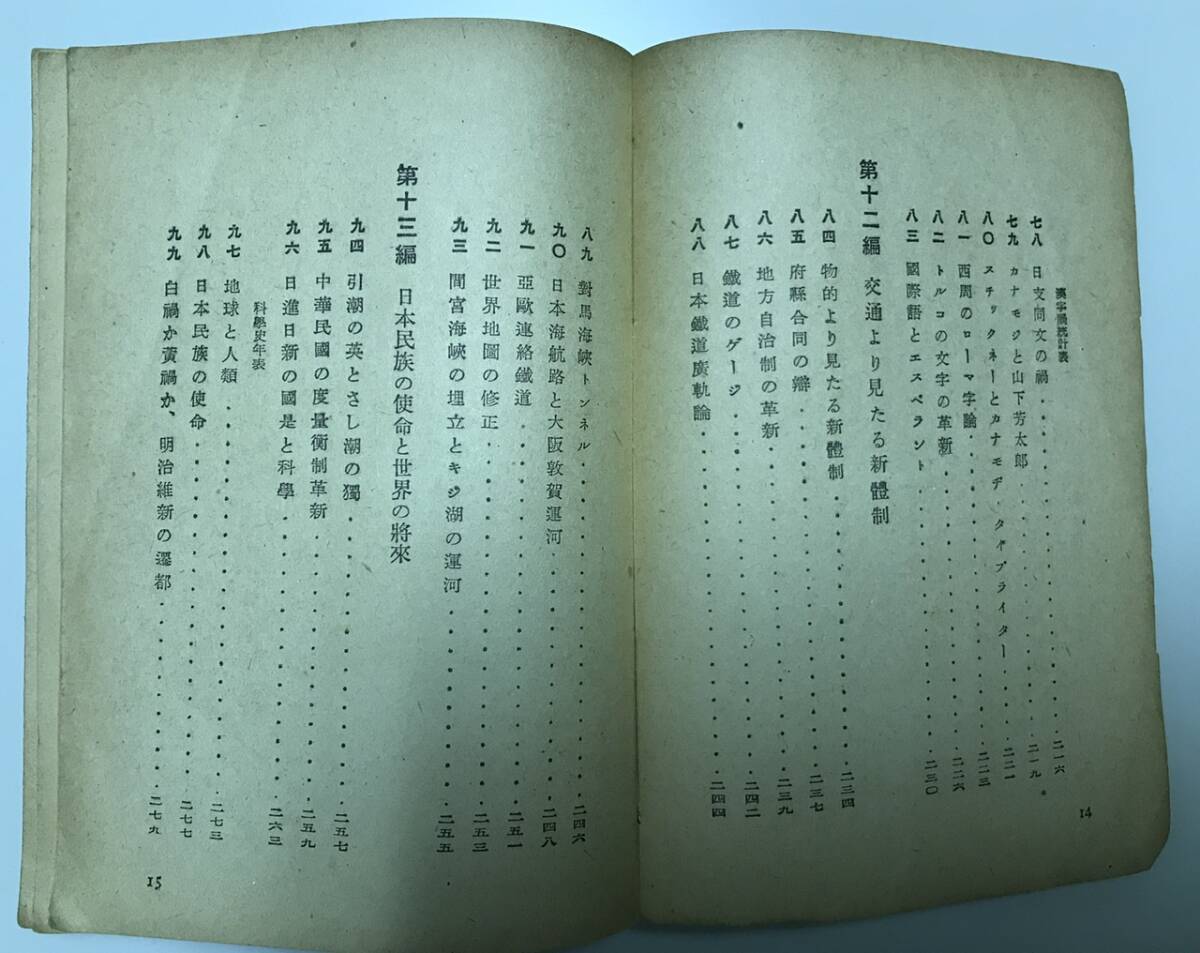 漢字禍統計表
七八 日支同文の禍 二一六
七九 カナモジと山下芳太郎 二一九
八〇 スチックネーとカナモヂ タイプライター 二二一
八一 西周のローマ字論 二二三
八二 トルコの文字の革新 二二六
八三 國際語とエスペラント 二三〇
第十二編 交通より見たる新體制
八四 物的より見たる新體制 二三四
八五 府縣合同の辯 二三七
八六 地方自治制の革新 二三九
八七 鐵道のゲージ 二四二
八八 日本鐵道廣軌論 二四四
14
八九 對馬海峽トンネル 二四六
九〇 日本海航路と大阪敦賀運河 二四八
九一 亞歐連絡鐵道 二五一
九二 世界地圖の修正 二五三
九三 間宮海峽の埋立とキジ湖の運河 二五五
第十三編 日本民族の使命と世界の將來
九四 引潮の英とさし潮の獨 二五七
九五 中華民國の度量衡制革新 二五九
九六 日進日新の國是と科學 二六三
科學史年表
九七 地球と人類 二七三
九八 日本民族の使命 二七七
九九 白禍か黃禍か、明治維新の遷都 二七九
15